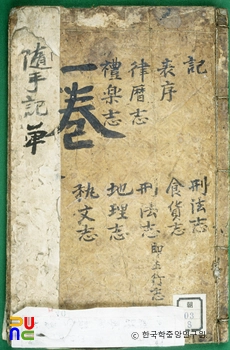 隨手記 草
一卷
記
表序
律曆志
禮樂志
刑法志
食貨志
刑法志 即五行志
地理志
執文志
朝
03
PUNC
ⓒ 한국학중앙연구원